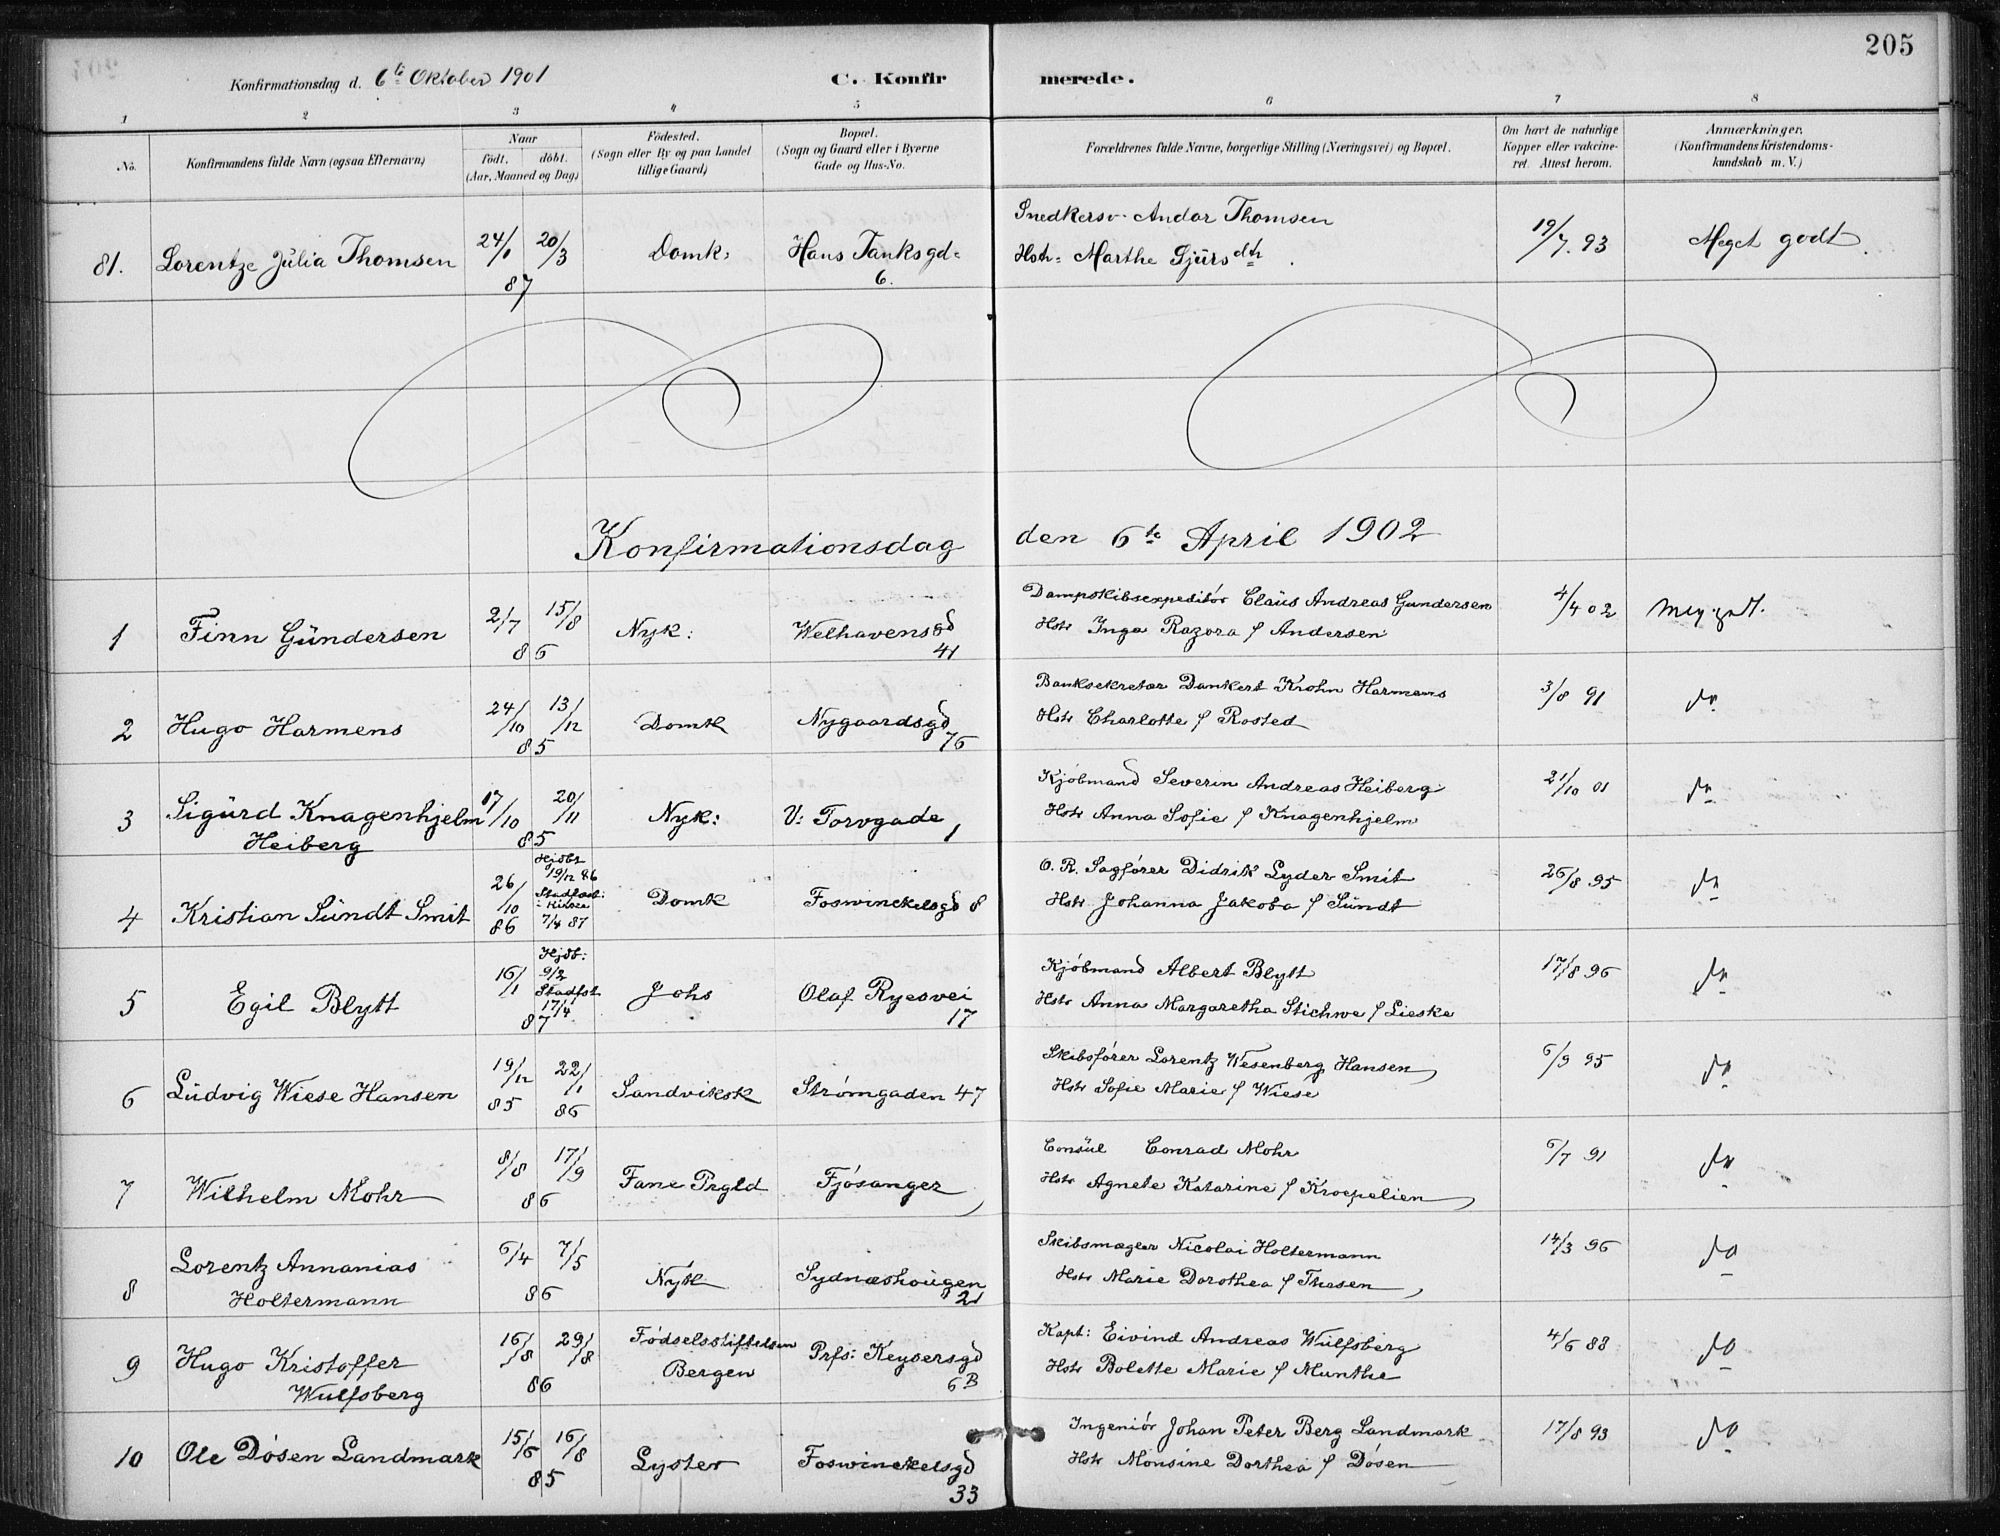 205
Konfirmationsdag d. 6te Oktober 1901
C. Konfirmerede.
1 2 3 4 5 6 7 8
No.
Konfirmandens fulde Navn (ogsaa Efternavn)
Naar
født. døbt.
(Aar, Maaned og Dag)
Fødested.
(Sogn eller By og paa Landet
tillige Gaard)
Bopæl.
(Sogn og Gaard eller i Byerne
Gade og Hus-No.
Forældrenes fulde Navne, borgerlige Stilling (Næringsvei) og Bopæl.
Om havt de naturlige
Kopper eller vakcine-
ret. Attest herom.
Anmærkninger.
(Konfirmandens Kristendoms-
kundskab m. V.)
81. Lorentze Julia Thomsen 24/1 20/3 87 Domk: Hans Tanksgd: 6.
Snedkersv. Andor Thomsen
Hstr: Marthe Gjürsdtr. 19/7. 93 Meget godt.
Konfirmationsdag den 6te April 1902
1 Finn Gündersen 2/7 15/8 86 Nyk: Welhavensgd 41
Dampskibsexpeditör Claüs Andreas Gundersen
Hstr Inga Razora f Andersen 4/4 02 Meg. godt.
2 Hugo Harmens 24/10 13/12 85 Domk Nygaardsgd 76
Banksekretær Dankert Krohn Harmens
Hstr Charlotte f Rosted 3/8 91 do
3 Sigürd Knagenhjelm Heiberg 17/10 20/11 85 Nyk: V: Torvgade 1
Kjöbmand Severin Andreas Heiberg
Hstr Anna Sofie f Knagenhjelm 21/10 01 do
4 Kristian Sündt Smit 26/10 86 Hjdbt 19/12 86 Stadfæst: i Kirken 7/4 87 Domk Foswinckelsgd 8
O. R. Sagfører Didrik Lyder Smit
Hstr Johanna Jakoba f Sündt 26/8 95 do
5 Egil Blytt 16/1 Hjdb: 9/3 Stadfst. 17/4 87 Johs Olaf Ryesvei 17
Kjöbmand Albert Blytt
Hstr Anna Margaretha Stichwe f Lieske 17/8 96 do
6 Lüdvig Wiese Hansen 19/12 85 22/1 86 Sandviksk Strømgaden 47
Skibsfører Lorentz Wesenberg Hansen
Hstr Sofie Marie f Wiese 6/9 95 do
7 Wilhelm Mohr 8/8 17/9 86 Fane Prgld Fjösanger
Consül Conrad Mohr
Hstr Agnete Katarine f Kroepelien 6/7 91 do
8 Lorentz Annanias Holtermann 6/4 7/5 86 Nyk Sydnæshougen 21
Skibsmægler Nicolai Holtermann
Hstr Marie Dorothea f Thesen 14/3 96 do
9 Hugo Kristoffer Wulfsberg 16/8 29/8 86 Fødselsstiftelsen Bergen Prfs: Keysersgd 6B
Kapt: Eivind Andreas Wulfsberg
Hstr Bolette Marie f Munthe 4/6 88 do
10 Ole Dösen Landmark 15/6 16/8 85 Lyster Foswinckelsgd 33
Ingeniör Johan Peter Berg Landmark
Hstr Monsine Dorthea f Dösen 17/8 93 do